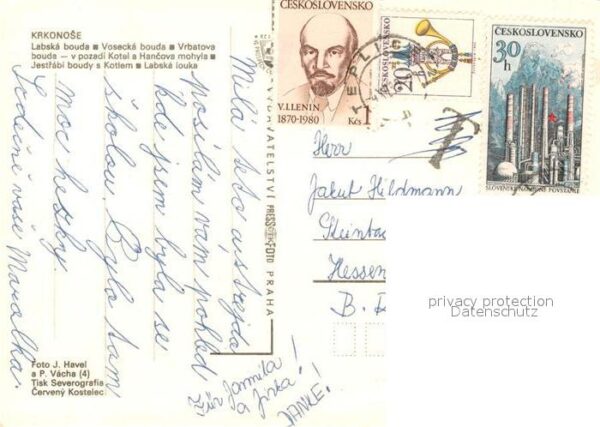 KRKONOŠE
Labská bouda ■ Vosecká bouda ■ Vrbatova
bouda — v pozadí Kotel a Hančova mohyla ■
Jestřábí boudy s Kotlem ■ Labská louka
Milá teto a strejdo
posílám vám pohled
kde jsem byla se
školou. Bylo tam
moc hezky.
Srdečně vaše Maruška.
Foto J. Havel
a P. Vácha (4)
Tisk Severografia
Červený Kostelec
VYDAVATELSTVÍ PRESSFOTO PRAHA
Jarmila!
a Jirka!
DANKE!
ČESKOSLOVENSKO
V.I.LENIN
1870-1980
Kčs 1
ČESKOSLOVENSKO
20
TEPLI
ČESKOSLOVENSKO
30
h
SLOVENSKÉ NÁRODNÉ POVSTANIE
T
Herr
Jakub Hildmann
Steinba
Hessen
B.
privacy protection
Datenschutz